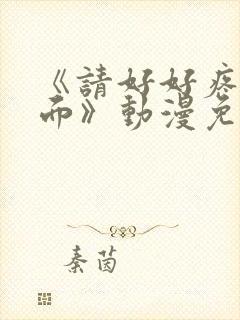 《請好好疼
而》動漫免
秦茵